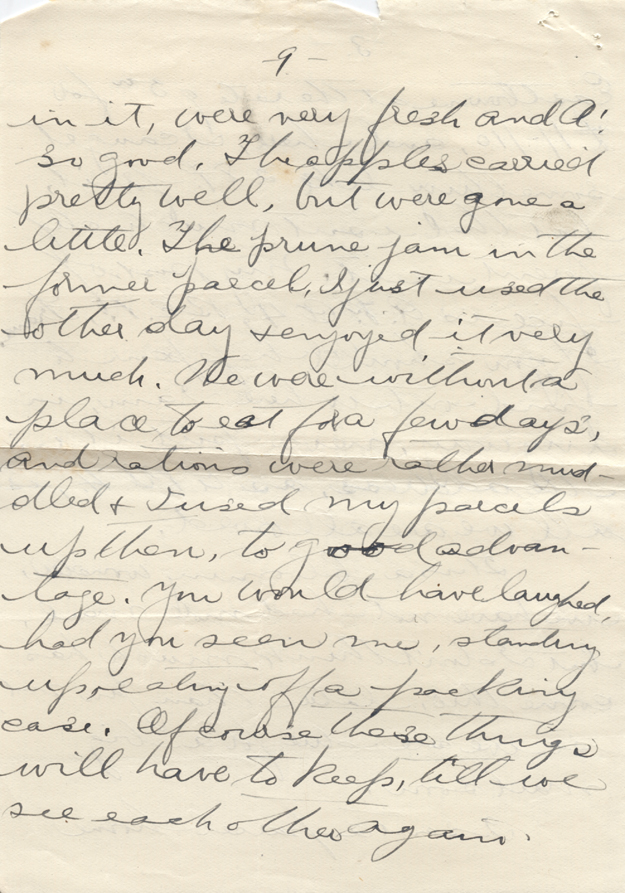 -9-
in it, were very fresh and O!
so good. The apples carried
pretty well, but were gone a
little. The prune jam in the
former parcel, I just used the
other day & enjoyed it very
much. We were without a
place to eat for a few days,
and rations were rather mud-
dled & I used my parcels
up then, to good advan-
tage. You would have laughed,
had you seen me, standing
up, eating off a packing
case. Of course these things
will have to keep, till we
see each other again.